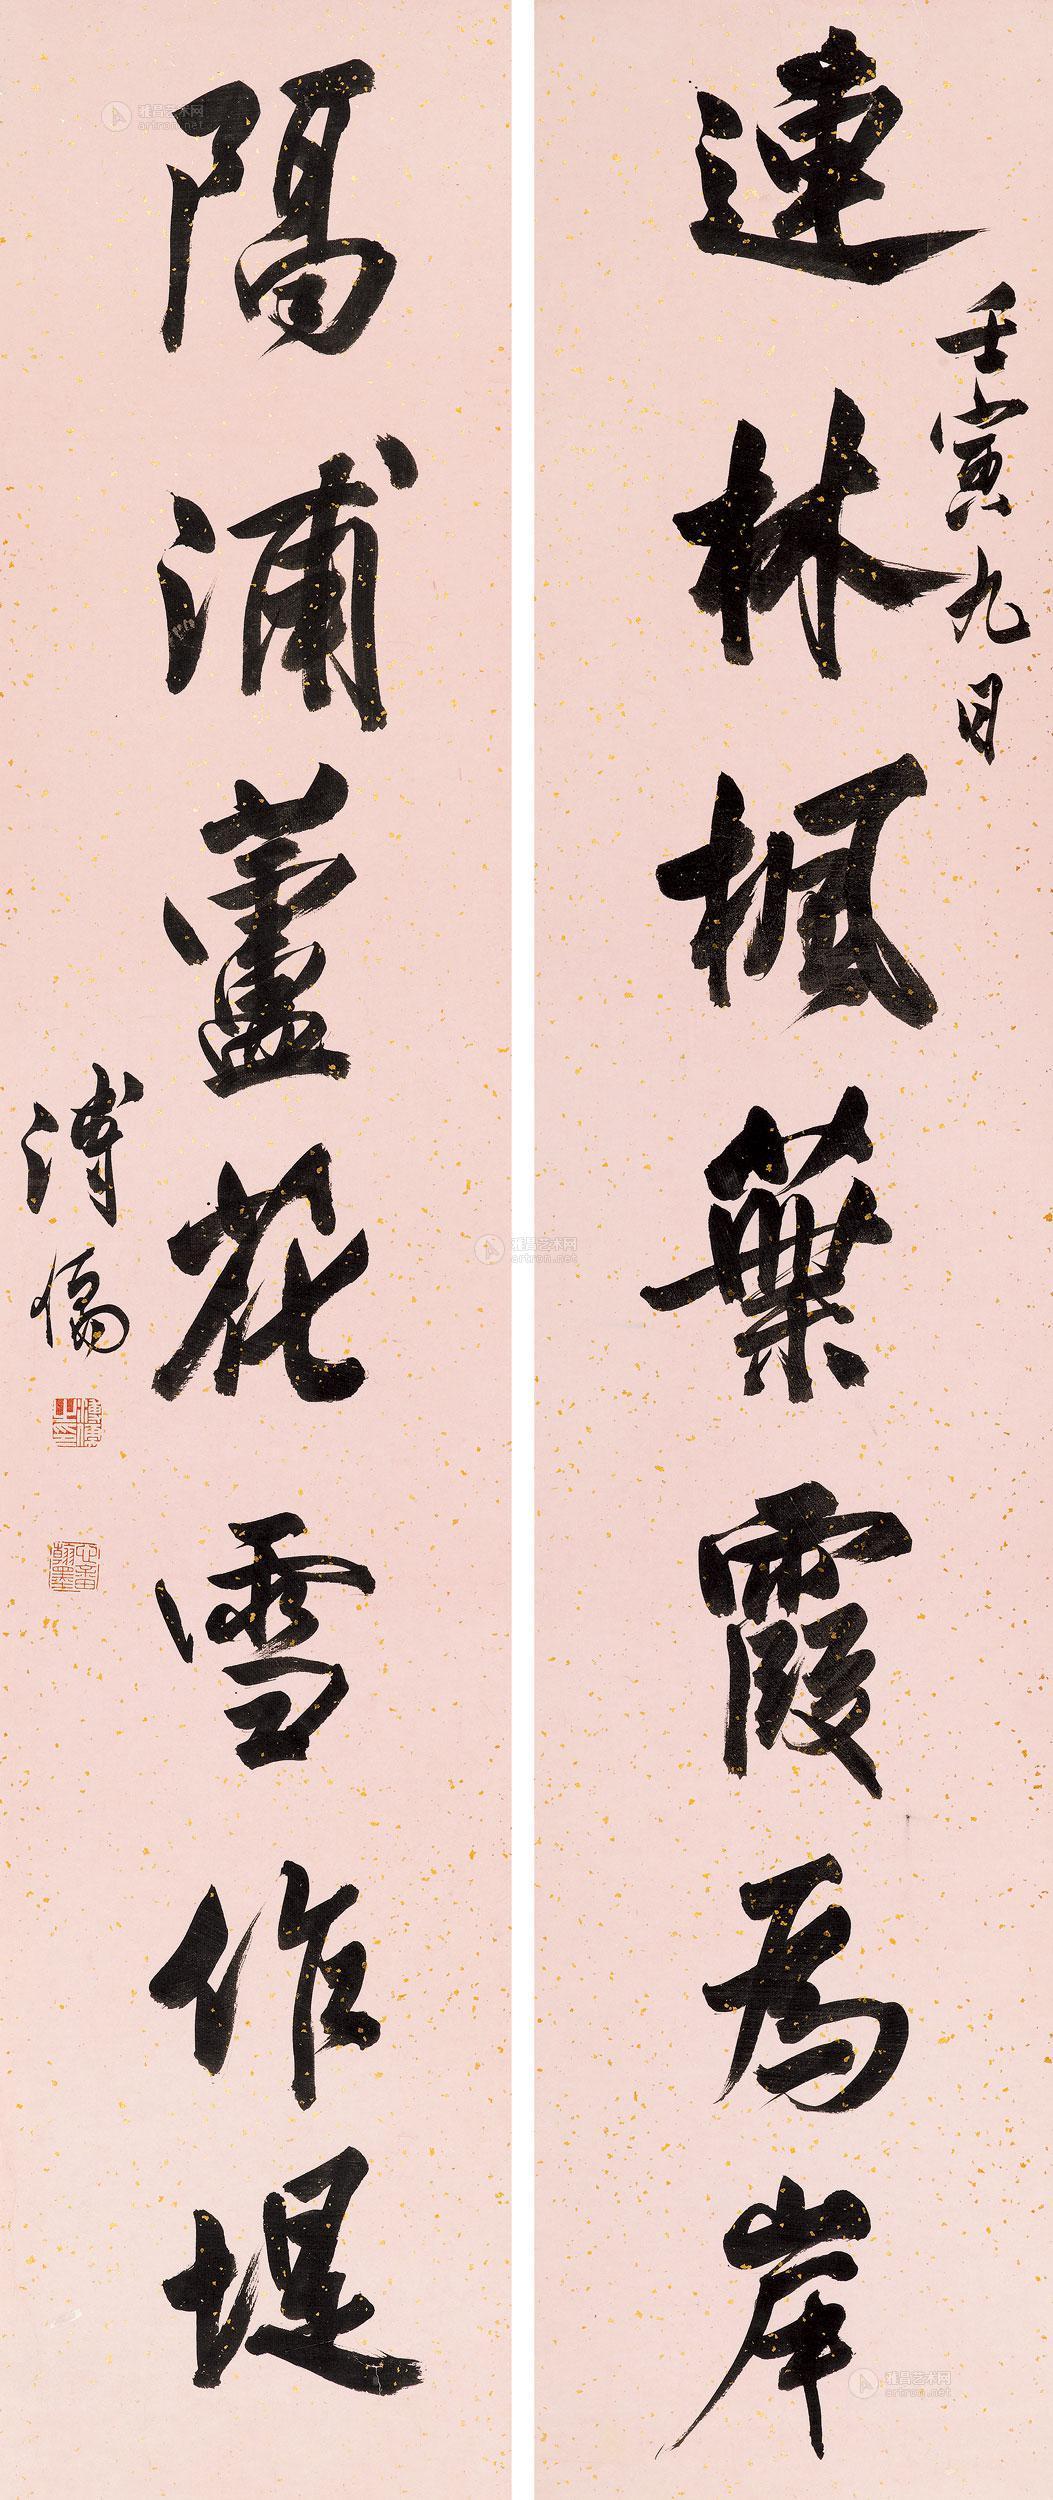 連林楓葉霞為岸
壬寅九日
隔浦蘆花雪作堤
溥僡
雅昌艺术网
artron.net
雅昌艺术网
artron.net
雅昌艺术网
artron.net